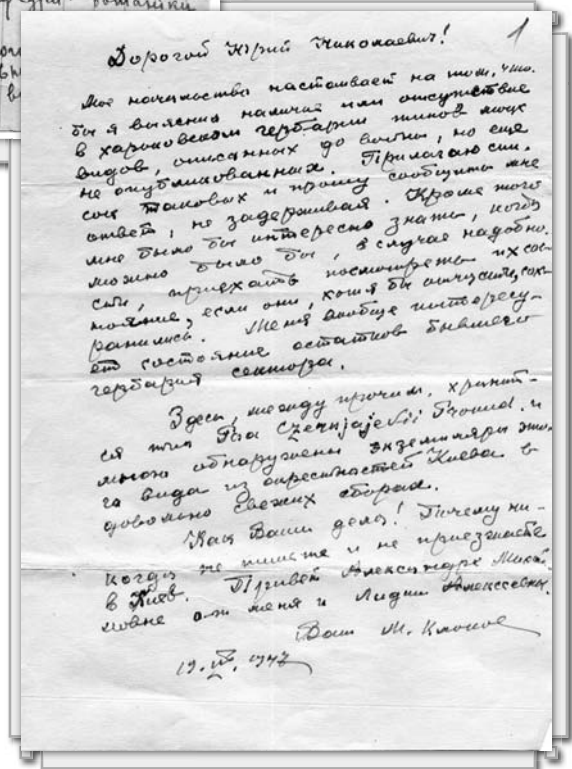 1
Дорогой Юрий Николаевич!
Мое начальство настаивает на том, что-
бы я выяснил наличие или отсутствие
в харьковском гербарии типов моих
видов, описанных до войны, но еще
не опубликованных. Прилагаю спи-
сок таковых и прошу сообщить мне
ответ, не задерживая. Кроме того
мне было бы интересно знать, когда
можно было бы, в случае надобно-
сти, приехать посмотреть их сос-
тояние, если они, хотя бы отчасти, сох-
ранились. Меня вообще интересу-
ет состояние остатков бывшего
гербария сектора.
Здесь, между прочим, хранит-
ся тип Poa Czernjajevii и
мною обнаружены экземпляры это-
го вида из окрестностей Киева в
довольно свежих сборах.
Как Ваши дела! Почему ни-
когда не пишете и не приезжаете
в Киев. Привет Александре
от меня и Лидии Алексеевны.
Ваш М. Клоков
19. 1947